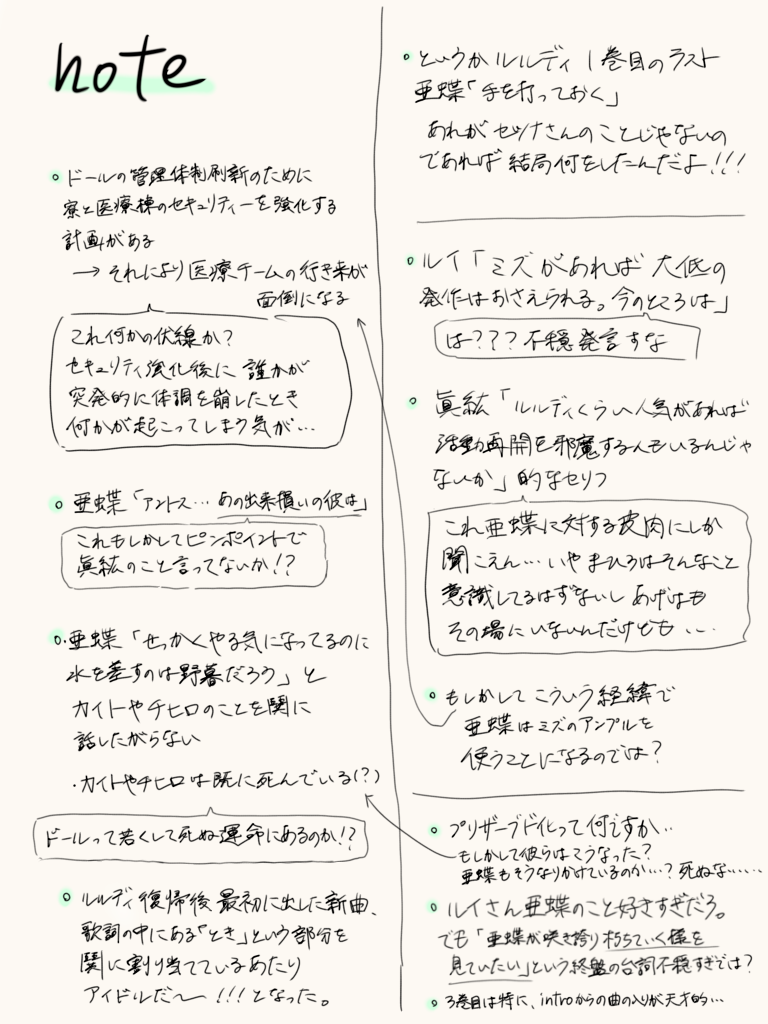 note
・ドールの管理体制刷新のために
寮と医療棟のセキュリティーを強化する
計画がある
→それにより医療チームの行き来が
面倒になる
これ何かの伏線か?
セキュリティ強化後に誰かが
突発的に体調を崩したとき
何かが起こってしまう気が…
・亜蝶「アントス…あの出来損いの彼は」
これもしかしてピンポイントで
眞紘のこと言ってないか!?
・亜蝶「せっかくやる気になってるのに
水を差すのは野暮だろう」と
カイトやチヒロのことを関に
話したがらない
・カイトやチヒロは既に死んでいる(?)
ドールって若くして死ぬ運命にあるのか!?
・ルルディ復帰後最初に出した新曲、
歌詞の中にある「とき」という部分を
関に割り当てているあたり
アイドルだ〜!!!となった。
・というかルルディ1巻目のラスト
亜蝶「手を打っておく」
あれがセツナさんのことじゃないの
であれば結局何をしたんだよ!!!
・ルイ「ミズがあれば大低の
発作はおさえられる。今のところは」
は???不穏発言すな
・眞紘「ルルディくらい人気があれば
活動再開を邪魔する人もいるんじゃ
ないか」的なセリフ
これ亜蝶に対する皮肉にしか
聞こえん…いやまひろはそんなこと
意識してるはずないし あげはも
その場にいないんだけども…
・もしかしてこういう経緯で
亜蝶はミズのアンプルを
使うことになるのでは?
・プリザーブド化って何ですか…
もしかして彼らはこうなった?
亜蝶もそうなりかけているのか…?死ぬな……
・ルイさん亜蝶のこと好きすぎだろ。
でも「亜蝶が咲き誇り朽ちていく様を
見ていたい」という終盤の台詞不穏すぎでは?
・3巻目は特に、introからの曲の入りが天才的…